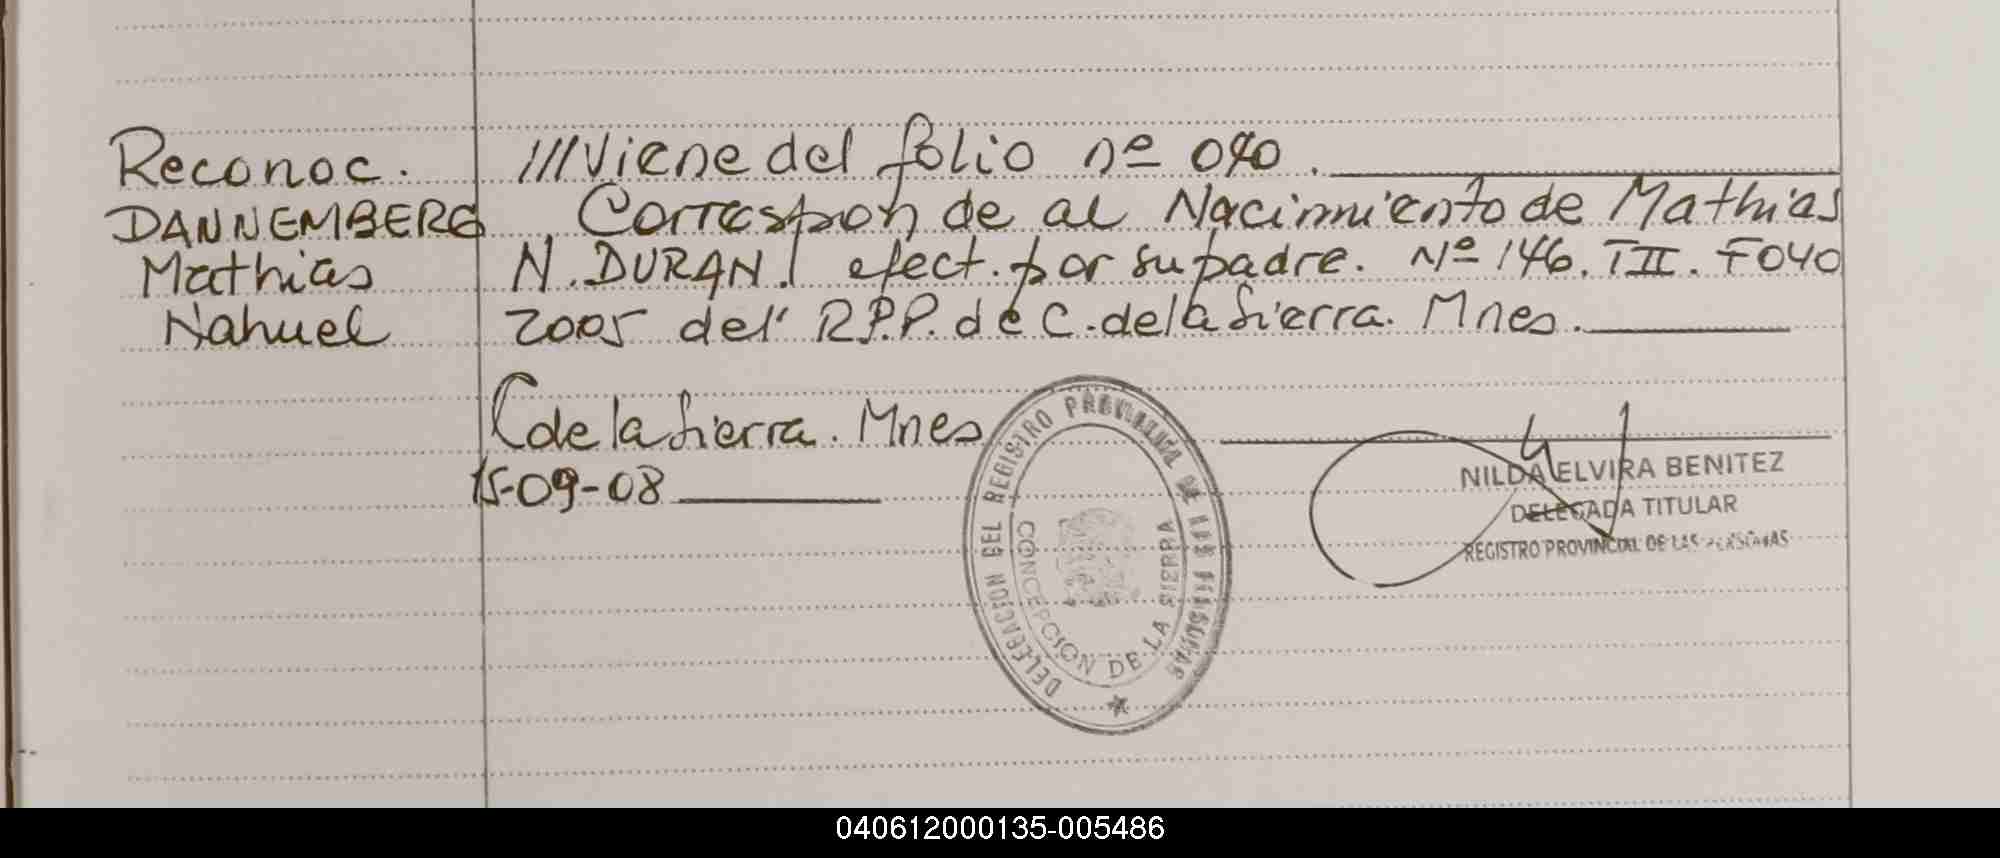 Reconoc. ///Viene del folio nº 040.
DANNEMBERG Corresponde al Nacimiento de Mathias
Mathias N. DURAN. efect. por su padre. Nº 146. TII. F040
Nahuel 2005 del R.P.P. de C. de la Sierra. Mnes.
C de la Sierra. Mnes
15-09-08
DELEGACION DEL REGISTRO PROVINCIAL DE LAS PERSONAS
CONCEPCION DE LA SIERRA
NILDA ELVIRA BENITEZ
DELEGADA TITULAR
REGISTRO PROVINCIAL DE LAS PERSONAS
040612000135-005486